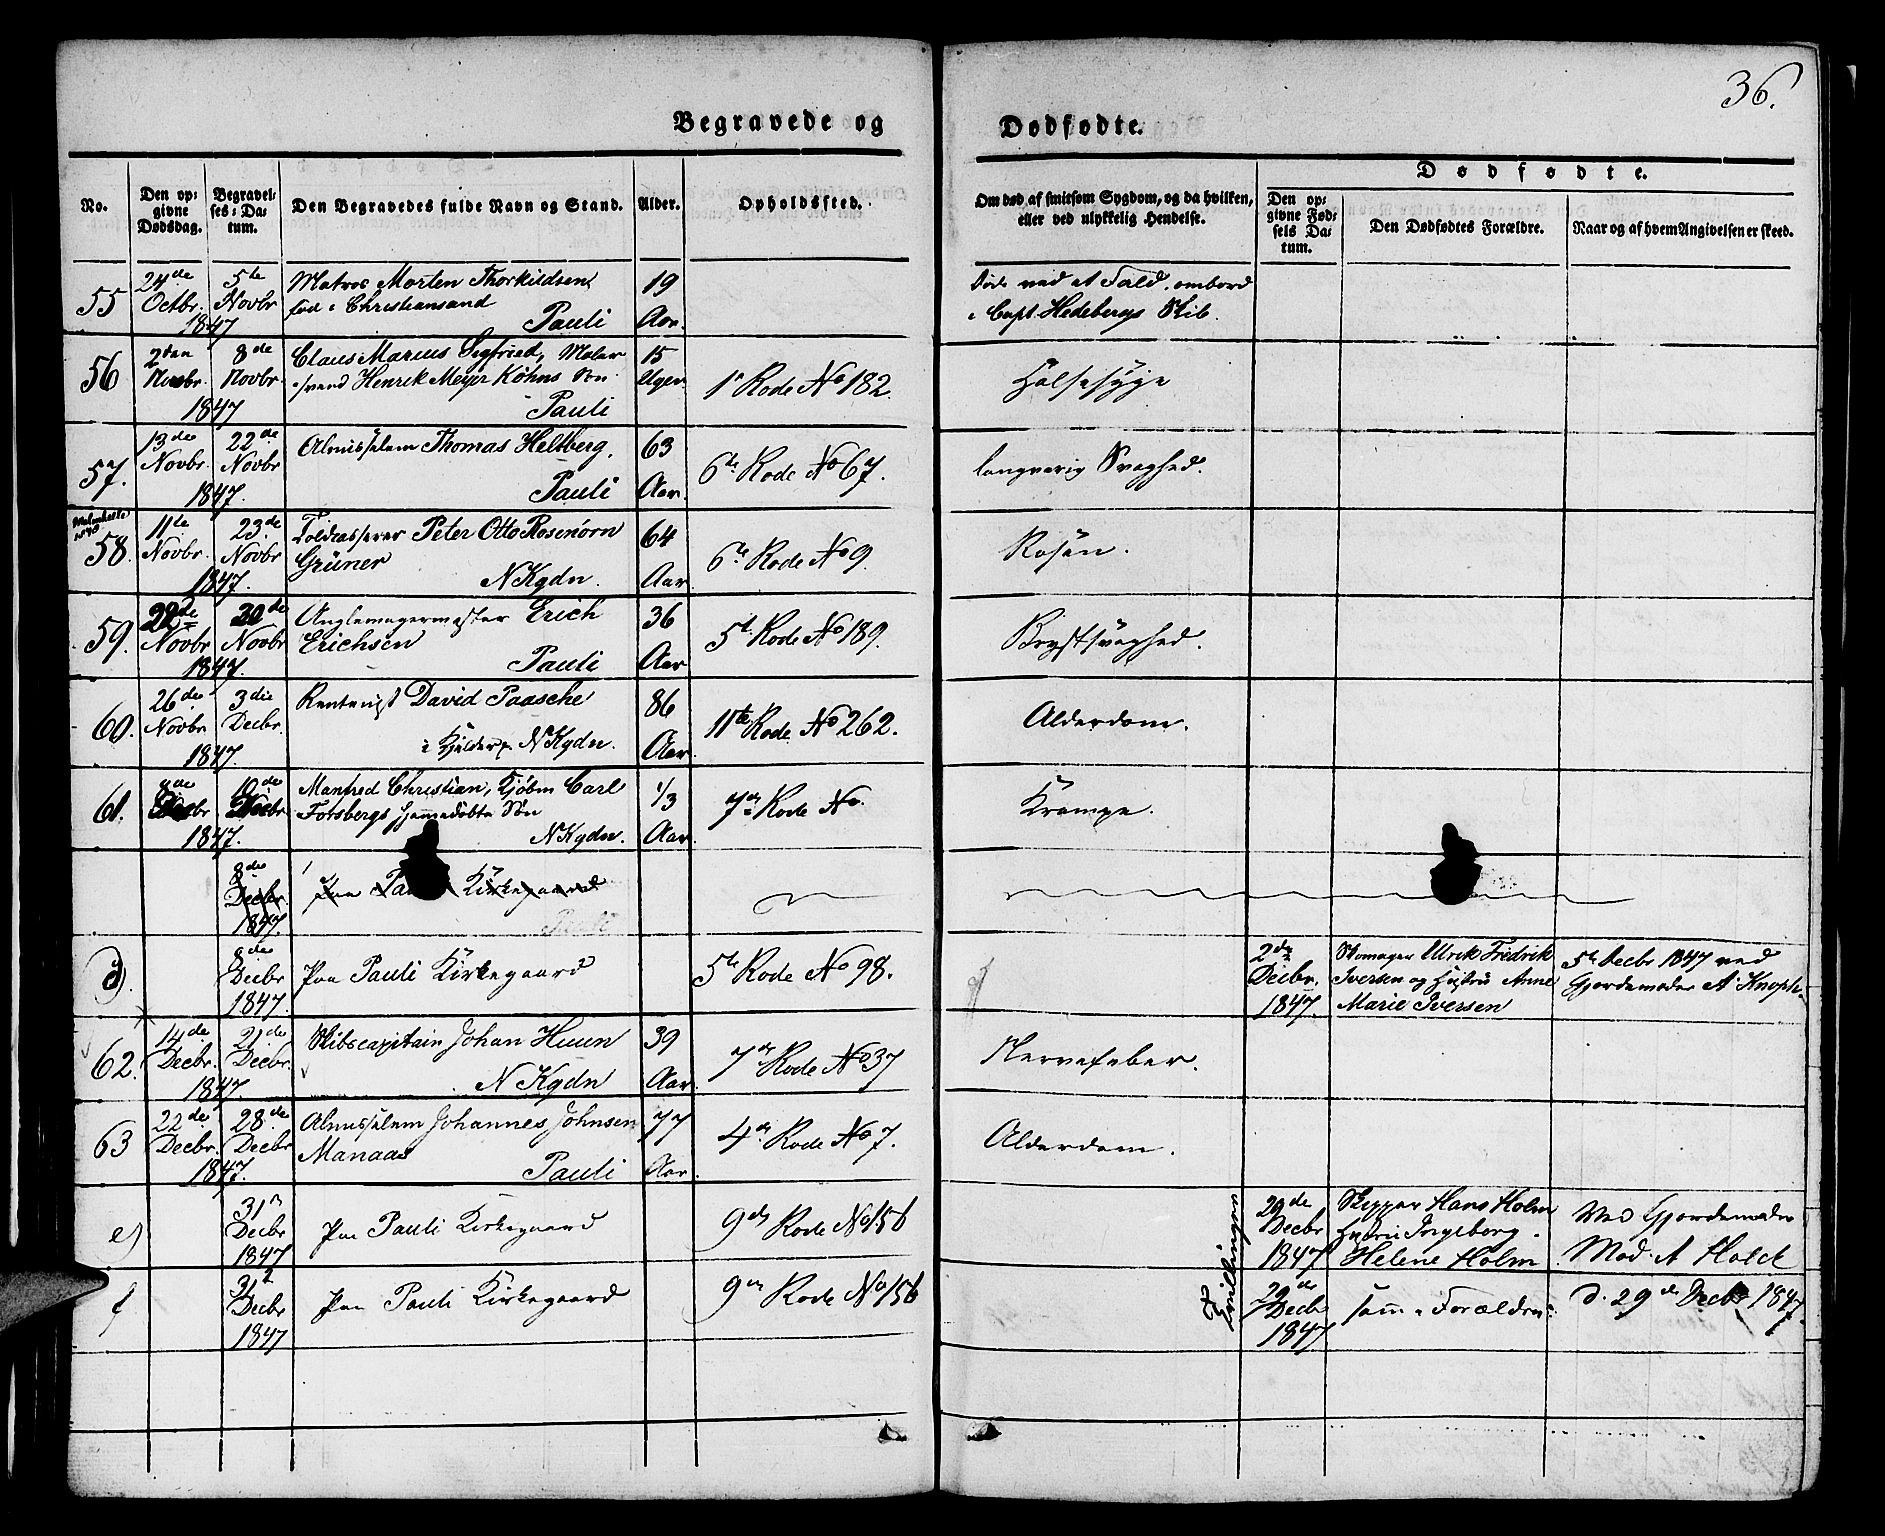 36.
Begravede og Dødfødte.
No.
Den op-
givne
Dødsdag.
Begravel-
ses-Da-
tum.
Den Begravedes fulde Navn og Stand.
Alder.
Opholdssted.
Om død af smitsom Sygdom, og da hvilken,
eller ved ulykkelig Hendelse.
Dødfødte.
Den op-
givne Fød-
sels Da-
tum.
Den Dødfødtes Forældre.
Naar og af hvem Angivelsen er skeed.
55
24de
Octbr.
5te
Novbr
1847
Matros Morten Thorkildsen
fød i Christiansand
Pauli
19
Aar.
Døde ved et Fald ombord
i Capt. Hedebergs Skib.
56
2den
Novbr.
8de
Novbr
1847
Claus Marius Sigfried, Maler
svend Henrik Meyer Køhns Søn
Pauli
15
Uger
1e Rode No 182.
Halsesyge
57.
13de
Novbr.
22de
Novbr
1847.
Almisselem Thomas Heltberg.
Pauli
63
Aar.
6te Rode No 67.
langvarig Svaghed.
58.
11te
Novbr.
23de
Novbr
1847.
Toldcasserer Peter Otto Rosenörn
Grüner
N Kgdn.
64
Aar
6te Rode No 9.
Rosen.
59.
22de
Novbr
30de
Novbr
1847.
Anglemagermester Erich
Erichsen
Pauli
36
Aar
5te Rode No 189.
Brystsvaghed.
60.
26de
Novbr
3die
Decbr.
1847.
Rentenist David Paasche
i Kjelder p. N Kgdn.
86
Aar.
11te Rode No 262.
Alderdom.
61.
8de
Decbr
10de
Decbr
1847.
Manfred Christian, Kjøbm Carl
Forsbergs hjemmedøbte Søn
N Kgdn.
1/3
Aar.
7de Rode No.
Krampe.
8de
Decbr
1847.
Paa Pauli Kirkegaard
Pauli
d).
8de
Decbr
1847.
Paa Pauli Kirkegaard
5te Rode No 98.
2den
Decbr.
1847.
Skomager Ulrik Fredrik
Iversen og Hustru Anne
Marie Iversen
5te Decbr 1847 ved
Gjordemoder A. Knoph.
62.
14de
Decbr.
21de
Decbr.
1847.
Skibscapitain Johan Huun
N Kgdn
39
Aar.
7de Rode No 37
Nervefeber.
63
22de
Decbr.
28de
Decbr
1847.
Almisselem Johannes Johnsen
Manaas
Pauli
77
Aar.
4de Rode No 7.
Alderdom.
e)
31
Decbr
1847
Paa Pauli Kirkegaard
9de Rode No 156
Tvillinger
29de
Decbr
1847
Skipper Hans Holm
Hustru Ingeborg
Helene Holm
Ved Gjordemoder
Mad. A Holck
f
31
Decbr
1847
Paa Pauli Kirkegaard
9de Rode No 156
29de
Decbr
1847.
samme Forældre
d. 29de Decbr 1847.